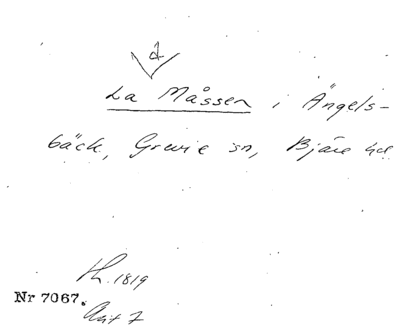 d
La Måssen i Ängels-
bäck, Grevie sn, Bjäre hd
th. 1819
Nr 7067.
Avit 7